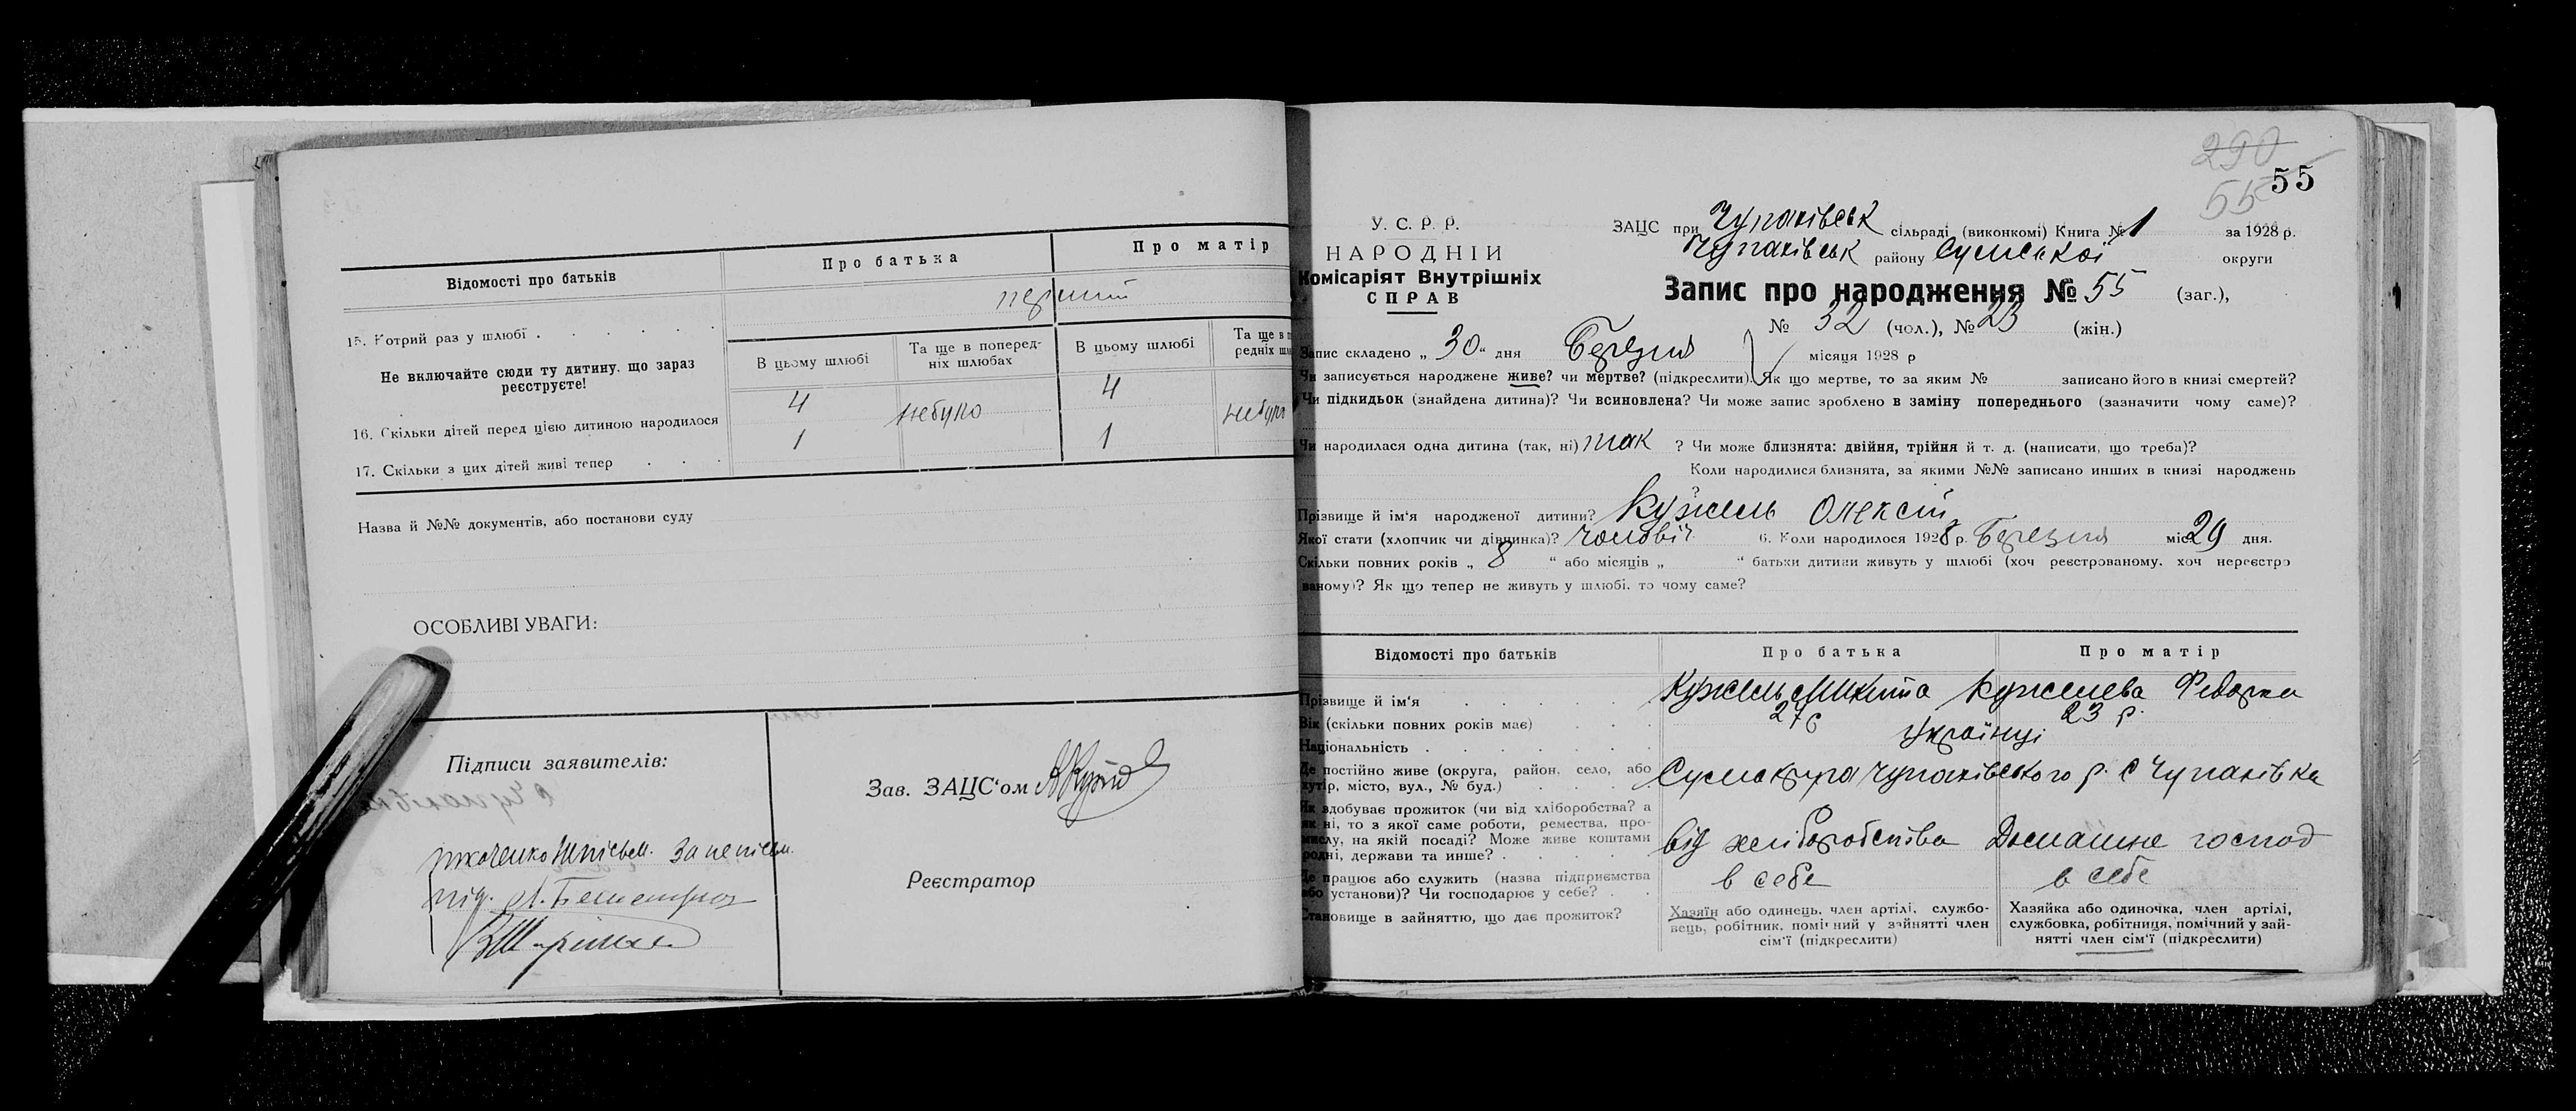 Відомості про батьків
Про батька
Про матір
15. Котрий раз у шлюбі
перший
Не включайте сюди ту дитину, що зараз
реєструєте!
В цьому шлюбі
Та ще в поперед-
ніх шлюбах
В цьому шлюбі
Та ще в п
редніх шл
16. Скільки дітей перед цією дитиною народилося
4 небуло 4
17. Скільки з цих дітей живі тепер
1 1
Назва й №№ документів, або постанови суду
ОСОБЛИВІ УВАГИ:
Підписи заявителів:
Зав. ЗАЦС'ом
Реєстратор
290
55
55
У. С. Р. Р.
НАРОДНІЙ
Комісаріят Внутрішніх
СПРАВ
ЗАЦС при Чупахівськ сільраді (виконкомі) Книга № 1 за 1928 р.
Чупахівськ району Сумської округи
Запис про народження № 55 (заг.),
№ 32 (чол.), № 23 (жін.)
Запис складено „ 30 " дня Березня місяця 1928 р
Чи записується народжене живе? чи мертве? (підкреслити). Як що мертве, то за яким № записано його в книзі смертей?
Чи підкидьок (знайдена дитина)? Чи всиновлена? Чи може запис зроблено в заміну попереднього (зазначити чому саме)?
Чи народилася одна дитина (так, ні) так ? Чи може близнята: двійня, трійня й т. д. (написати, що треба)?
Коли народилися близнята, за якими №№ записано инших в книзі народжень
?
Прізвище й ім'я народженої дитини? Кужель Олексій
Якої стати (хлопчик чи дівчинка)? чоловіч. 6. Коли народилося 1928 р. Березня міс. 29 дня.
Скільки повних років „ 8 " або місяців „ " батьки дитини живуть у шлюбі (хоч реєстрованому, хоч нереєстро
ваному)? Як що тепер не живуть у шлюбі, то чому саме?
Відомості про батьків
Про батька
Про матір
Прізвище й ім'я
Кужель Микита Кужелева Федорка
Вік (скільки повних років має)
27 р 23 р.
Національність
Українці
Де постійно живе (округа, район, село, або
хутір, місто, вул., № буд.)
Сумокруга Чупахівського р. с Чупахівка
Як здобуває прожиток (чи від хліборобства? а
як ні, то з якої саме роботи, ремества, про-
мислу, на якій посаді? Може живе коштами
родні, держави та инше?
від хліборобства Домашне господ
Де працює або служить (назва підприємства
або установи)? Чи господарює у себе?
в себе в себе
Становище в зайняттю, що дає прожиток?
Хазяїн або одинець, член артілі, службо-
вець, робітник, помічний у зайнятті член
сім'ї (підкреслити)
Хазяйка або одиночка, член артілі,
службовка, робітниця, помічний у зай-
нятті член сім'ї (підкреслити)